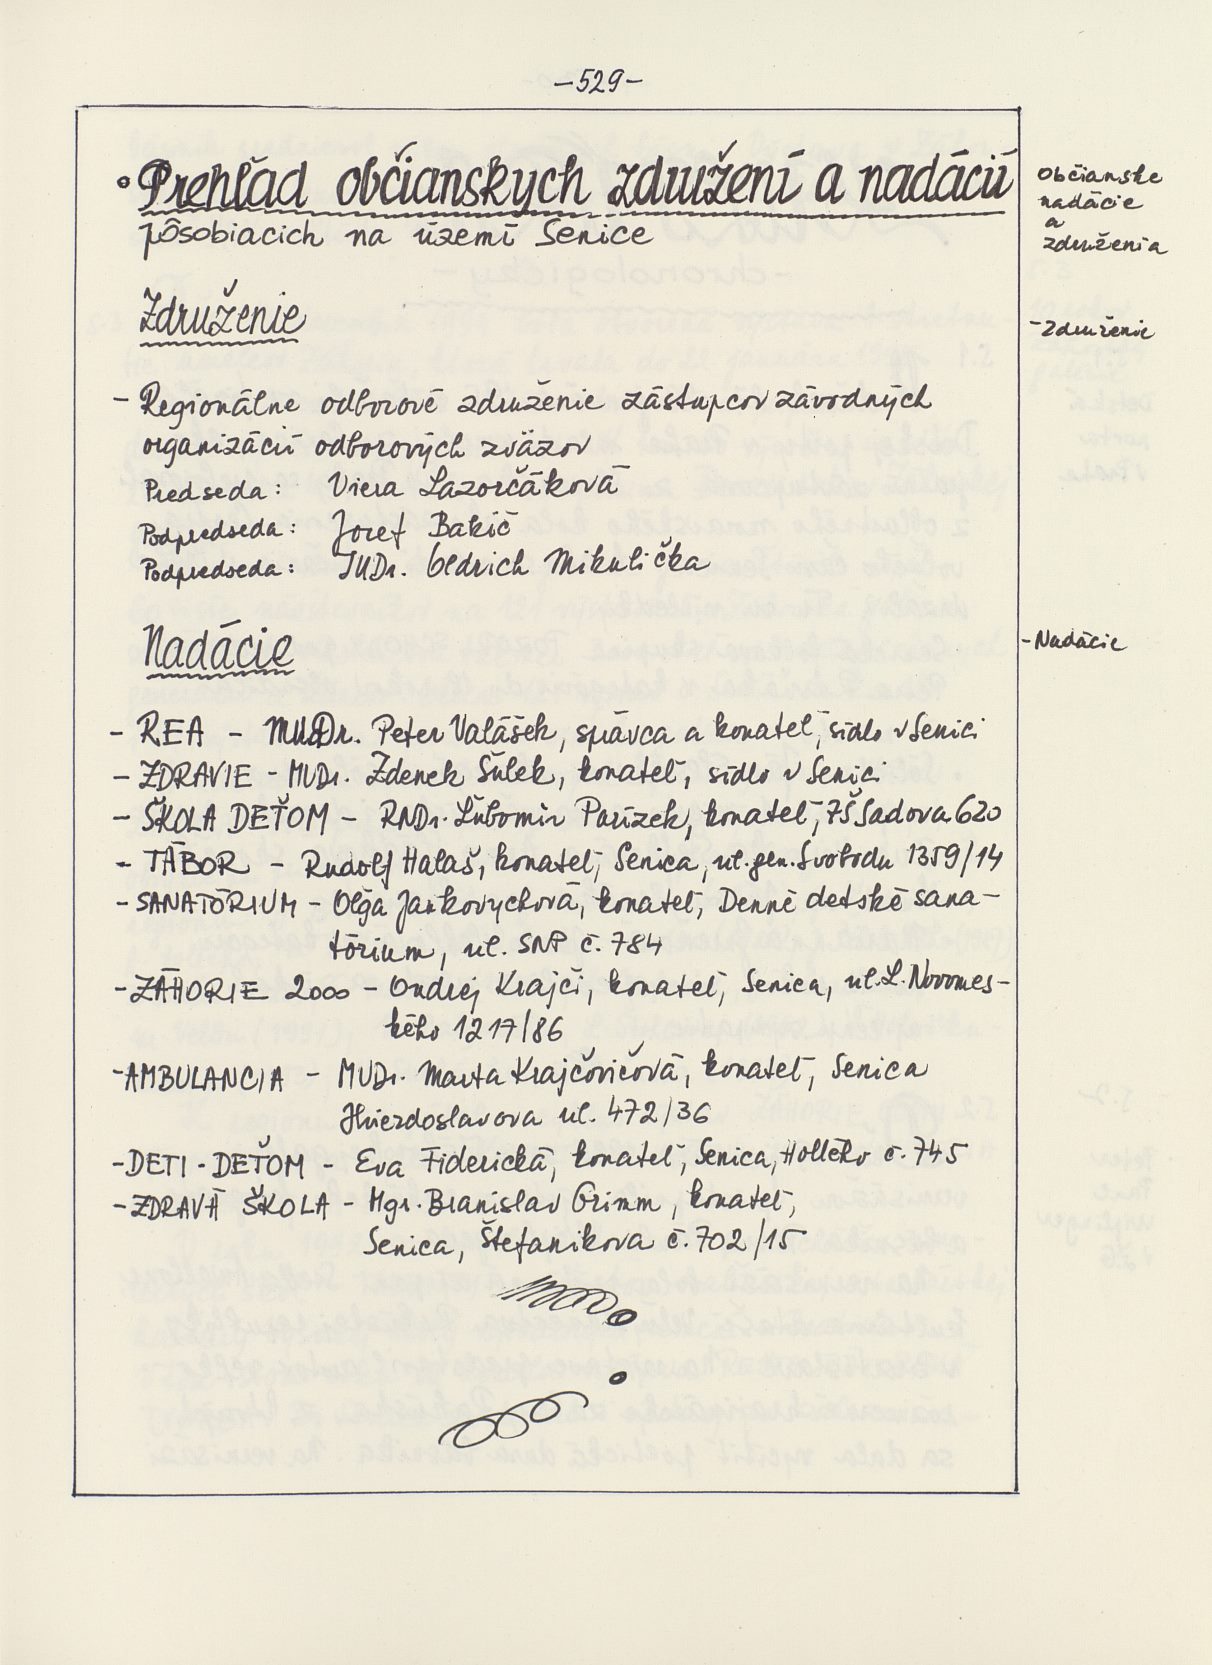 -529-
Prehľad občianskych združení a nadácií
pôsobiacich na území Senice
Občianske
nadácie
a
združenia
Združenie
- Združenie
- Regionálne odborové združenie zástupcov závodných
organizácií odborových zväzov
Predseda: Viera Lazorčáková
Podpredseda: Jozef Bakič
Podpredseda: JUDr. Oldrich Mikulička
Nadácie
- Nadácie
- REA - MUDr. Peter Valášek, správca a konateľ, sídlo v Senici
- ZDRAVIE - MUDr. Zdenek Šulek, konateľ, sídlo v Senici
- ŠKOLA DEŤOM - RNDr. Ľubomír Parízek, konateľ, ZŠ Sadova 620
- TÁBOR - Rudolf Halaš, konateľ, Senica, ul. gen. Svobodu 1359/14
- SANATÓRIUM - Oľga Jankovychová, konateľ, Denné detské sana-
tórium, ul. SNP č. 784
- ZÁHORIE 2000 - Ondrej Krajči, konateľ, Senica, ul. L. Novomes-
kého 1217/86
- AMBULANCIA - MUDr. Marta Krajčovičová, konateľ, Senica
Hviezdoslavova ul. 472/36
- DETI - DEŤOM - Eva Fiderická, konateľ, Senica, Hollého č. 745
- ZDRAVÁ ŠKOLA - Mgr. Branislav Grimm, konateľ,
Senica, Štefanikova č. 702/15